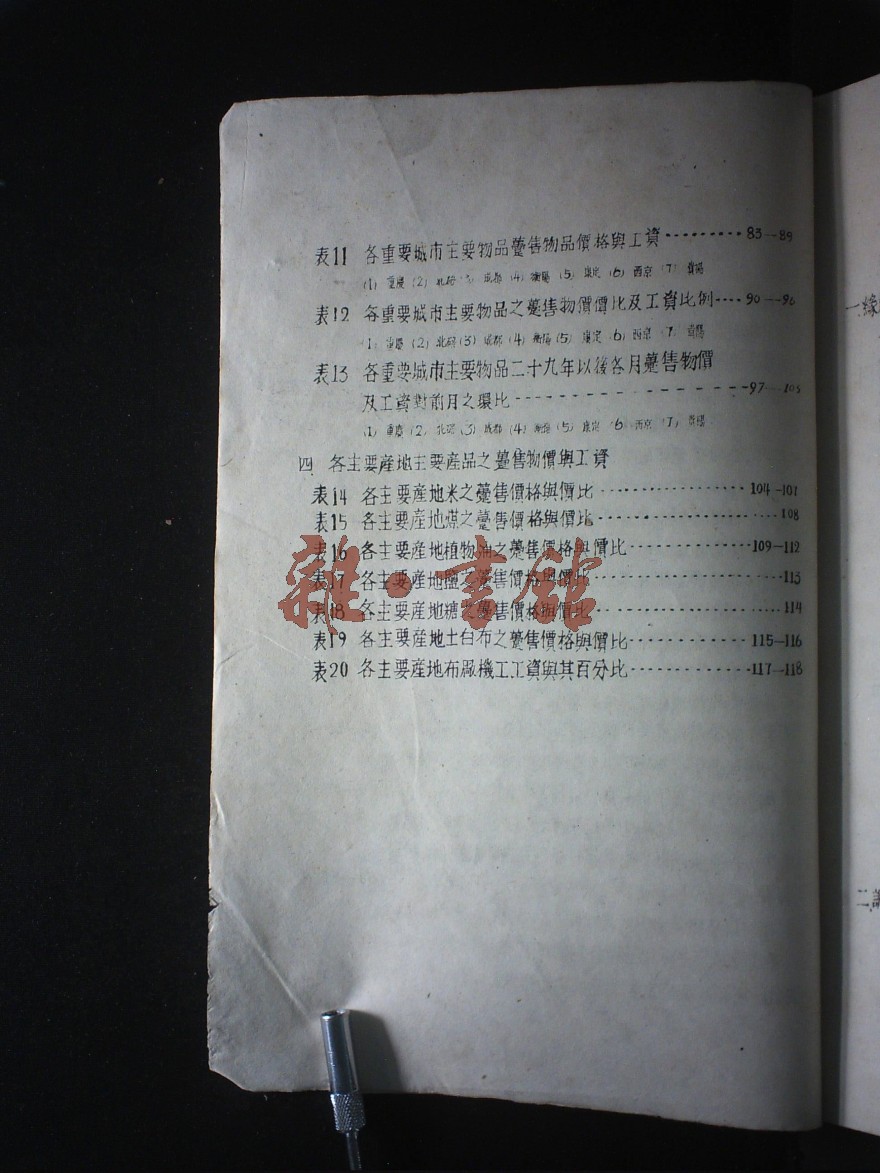 表11 各重要城市主要物品躉售物品價格與工資·········83—89
(1) 重慶 (2) 北碚 (3) 成都 (4) 衡陽 (5) 康定 (6) 西京 (7) 貴陽
表12 各重要城市主要物品之躉售物價價比及工資比例····90—96
(1) 重慶 (2) 北碚 (3) 成都 (4) 衡陽 (5) 康定 (6) 西京 (7) 貴陽
表13 各重要城市主要物品二十九年以後各月躉售物價
及工資對前月之環比--------------------97—103
(1) 重慶 (2) 北碚 (3) 成都 (4) 衡陽 (5) 康定 (6) 西京 (7) 貴陽
四 各主要産地主要産品之躉售物價與工資
表14 各主要産地米之躉售價格與價比················104—107
表15 各主要産地煤之躉售價格與價比····················108
表16 各主要産地植物油之躉售價格與價比·············109—112
表17 各主要産地鹽之躉售價格與價比····················113
表18 各主要産地糖之躉售價格與價比····················114
表19 各主要産地土白布之躉售價格與價比·············115—116
表20 各主要産地布厰機工工資與其百分比·············117—118
雜·書館
一、緣
二、